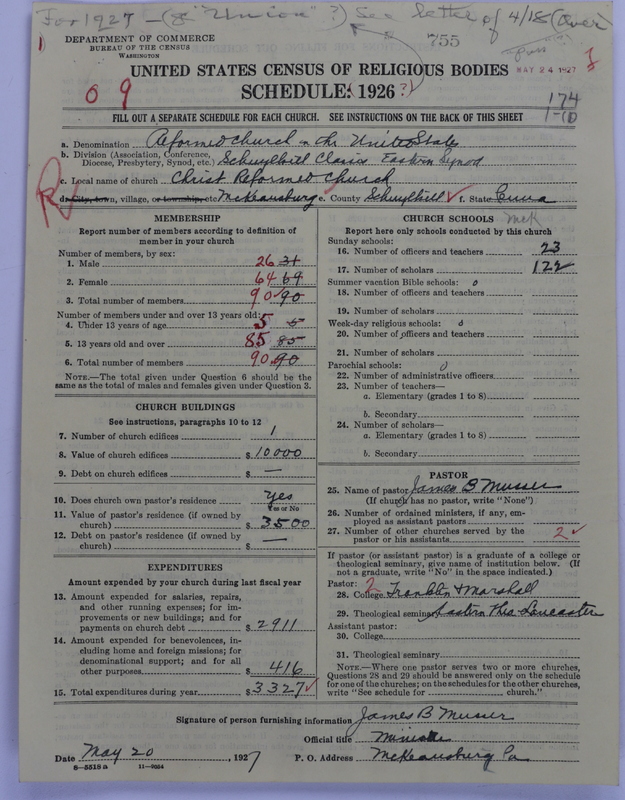 For 1927 - (8 "Union"?) See letter of 4/18 (over
1
DEPARTMENT OF COMMERCE
BUREAU OF THE CENSUS
WASHINGTON
755
MAY 24 1927
UNITED STATES CENSUS OF RELIGIOUS BODIES
SCHEDULE: 1926 ?
0 9
174
1-10
FILL OUT A SEPARATE SCHEDULE FOR EACH CHURCH. SEE INSTRUCTIONS ON THE BACK OF THIS SHEET
a. Denomination Reformed Church in the United States
b. Division (Association, Conference, Diocese, Presbytery, Synod, etc.) Schuylkill Classis Eastern Synod
c. Local name of church Christ Reformed Church
d. City, town, village, or township, etc McKeansburg e. County Schuylkill f. State Penna
R
MEMBERSHIP
Report number of members according to definition of
member in your church
Number of members, by sex:
1. Male 26 31
2. Female 64 69
3. Total number of members 90 90
Number of members under and over 13 years old:
4. Under 13 years of age 5 5
5. 13 years old and over 85 85
6. Total number of members 90 90
NOTE.—The total given under Question 6 should be the
same as the total of males and females given under Question 3.
CHURCH BUILDINGS
See instructions, paragraphs 10 to 12
7. Number of church edifices 1
8. Value of church edifices $ 10000
9. Debt on church edifices $ —
10. Does church own pastor's residence yes
Yes or No
11. Value of pastor's residence (if owned by
church) $ 3500
12. Debt on pastor's residence (if owned by
church) $ —
EXPENDITURES
Amount expended by your church during last fiscal year
13. Amount expended for salaries, repairs,
and other running expenses; for im-
provements or new buildings; and for
payments on church debt $ 2911
14. Amount expended for benevolences, in-
cluding home and foreign missions; for
denominational support; and for all
other purposes $ 416
15. Total expenditures during year $ 3327
CHURCH SCHOOLS McK
Report here only schools conducted by this church
Sunday schools:
16. Number of officers and teachers 23
17. Number of scholars 122
Summer vacation Bible schools: 0
18. Number of officers and teachers
19. Number of scholars
Week-day religious schools: 0
20. Number of officers and teachers
21. Number of scholars
Parochial schools: 0
22. Number of administrative officers
23. Number of teachers—
a. Elementary (grades 1 to 8)
b. Secondary
24. Number of scholars—
a. Elementary (grades 1 to 8)
b. Secondary
PASTOR
25. Name of pastor James B Musser
(If church has no pastor, write "None")
26. Number of ordained ministers, if any, em-
ployed as assistant pastors
27. Number of other churches served by the
pastor or his assistants 2
If pastor (or assistant pastor) is a graduate of a college or
theological seminary, give name of institution below. (If
not a graduate, write "No" in the space indicated.)
Pastor: 2
28. College Franklin & Marshall
29. Theological seminary Eastern Theo Lancaster
Assistant pastor:
30. College
31. Theological seminary
NOTE.—Where one pastor serves two or more churches,
Questions 28 and 29 should be answered only on the schedule
for one of the churches; on the schedules for the other churches,
write "See schedule for church."
Signature of person furnishing information James B Musser
Official title Minister
Date May 20, 1927 P. O. Address McKeansburg Pa
8-5515a 11-9664